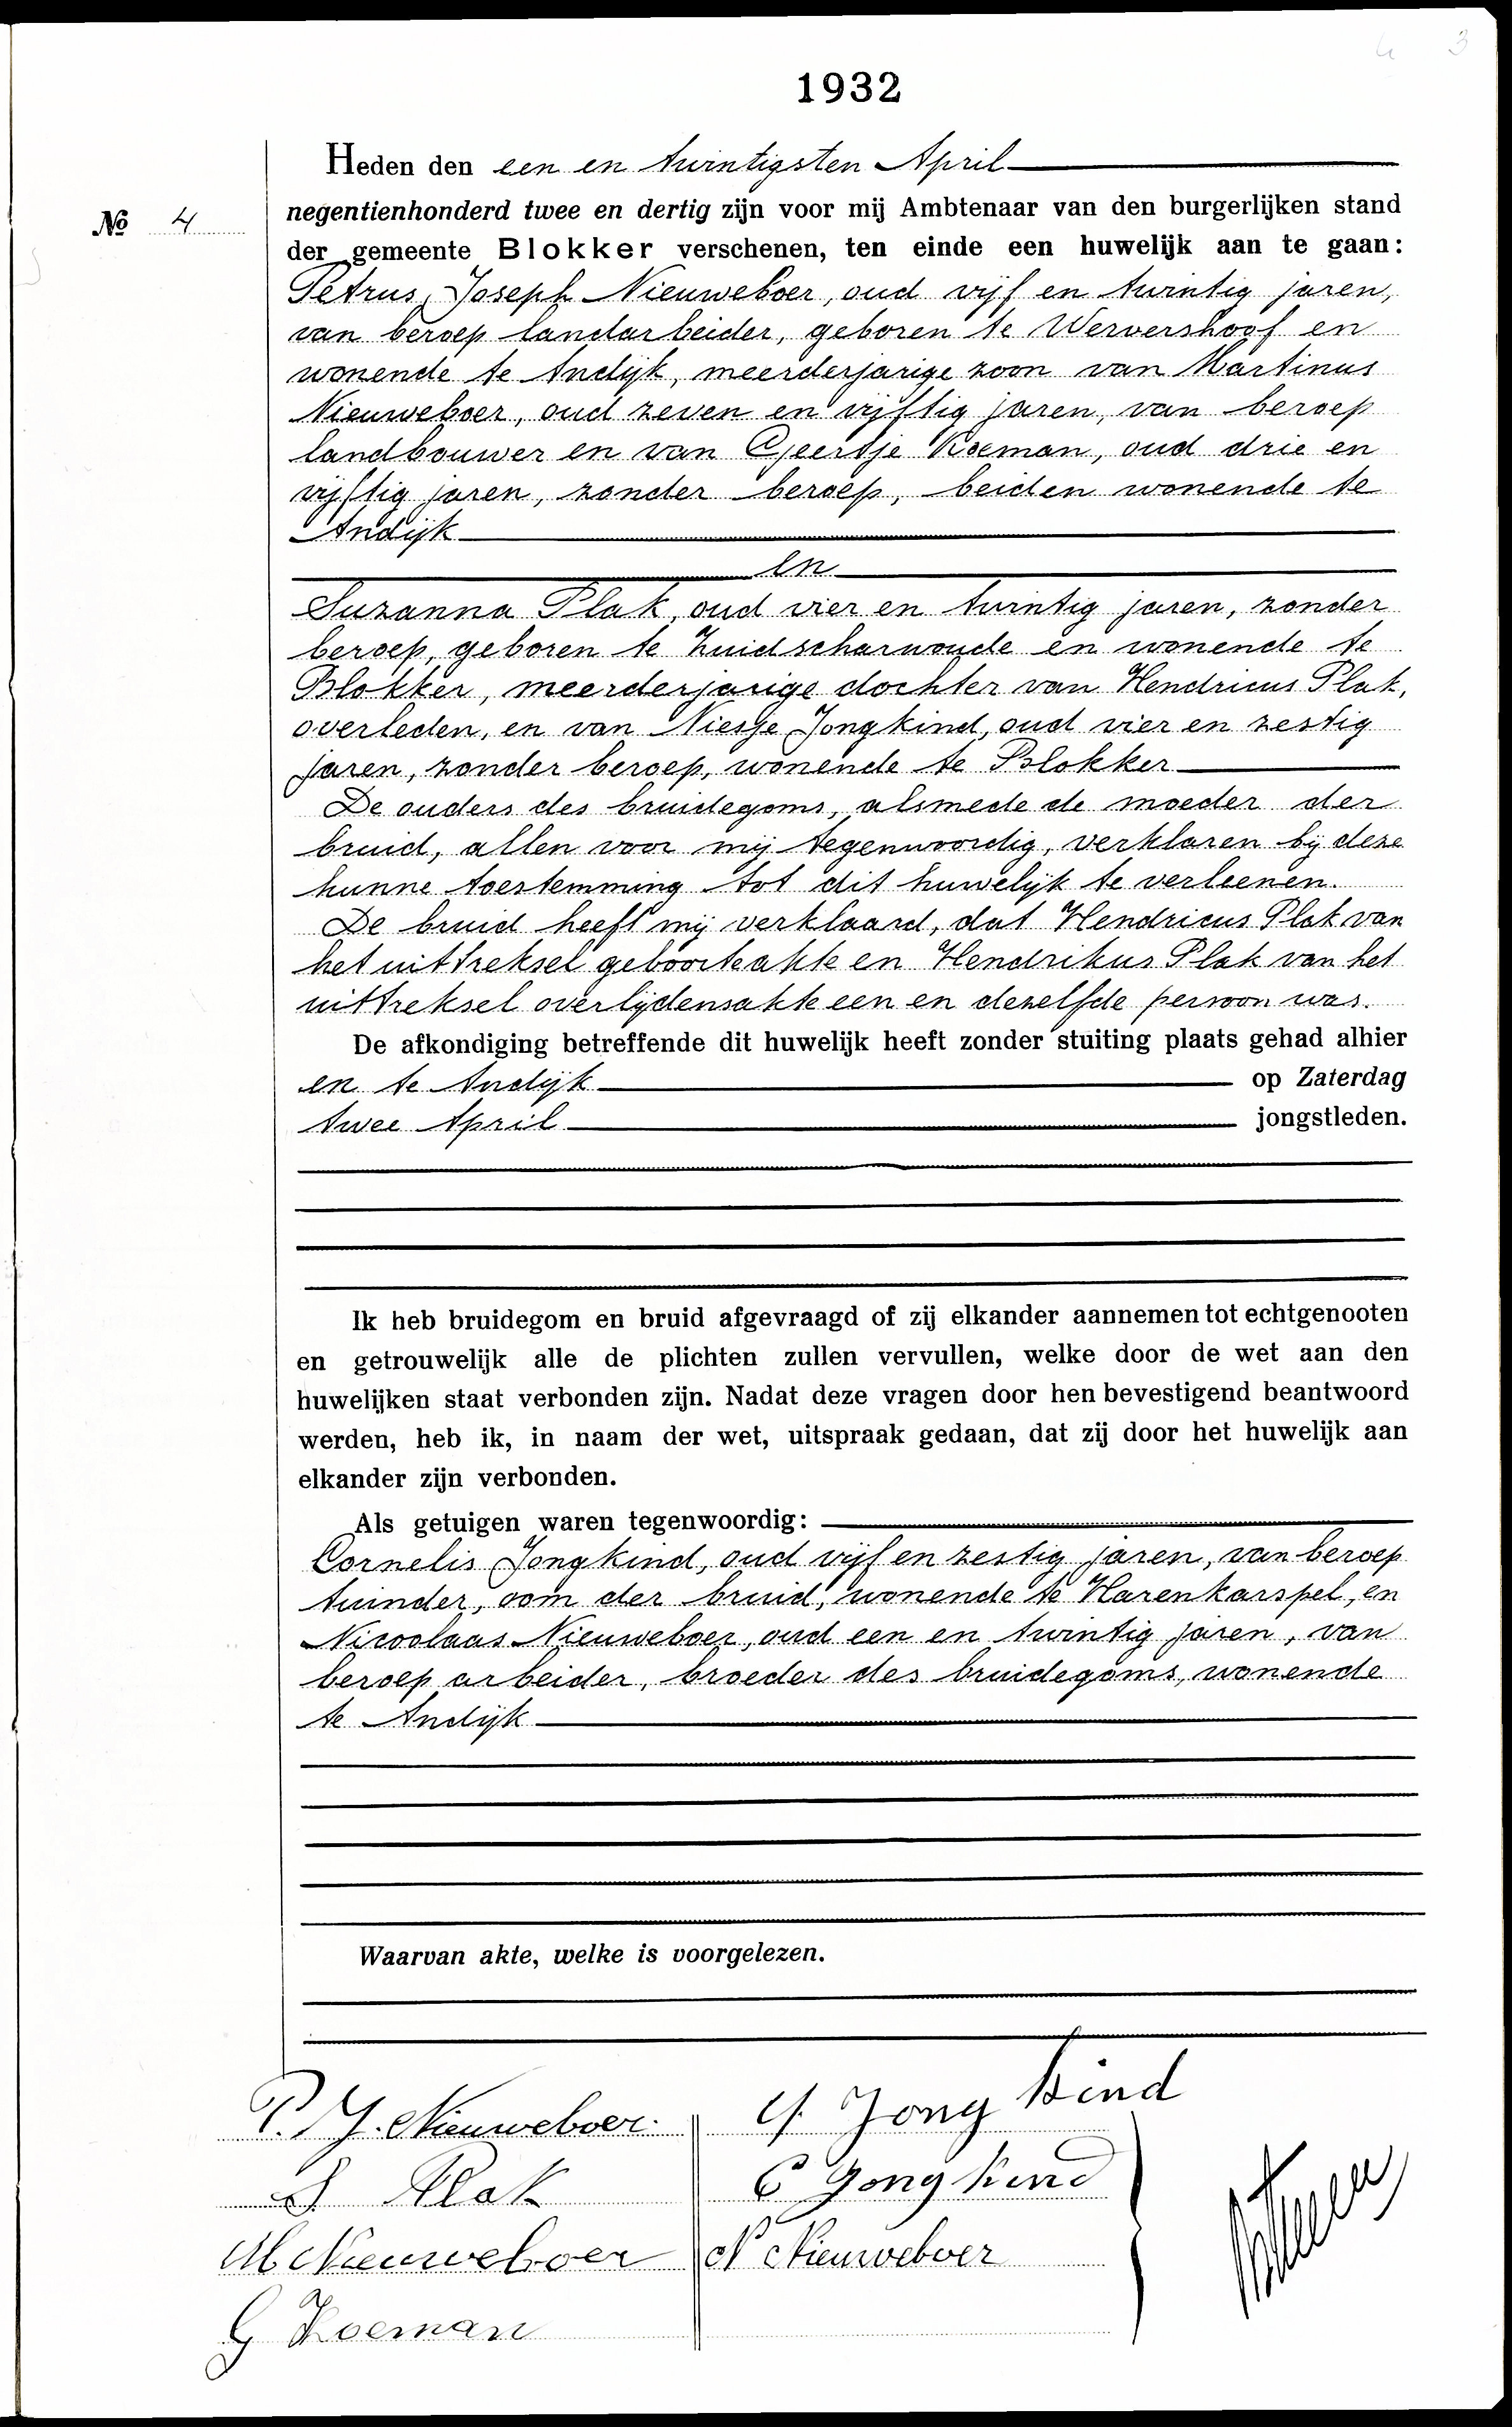 4 3
1932
Heden den een en twintigsten April
No 4
negentienhonderd twee en dertig zijn voor mij Ambtenaar van den burgerlijken stand
der gemeente Blokker verschenen, ten einde een huwelijk aan te gaan:
Petrus Joseph Nieuweboer, oud vijf en twintig jaren,
van beroep landarbeider, geboren te Wervershoof en
wonende te Andijk, meerderjarige zoon van Martinus
Nieuweboer, oud zeven en vijftig jaren, van beroep
landbouwer en van Geertje Koeman, oud drie en
vijftig jaren, zonder beroep, beiden wonende te
Andijk
en
Suzanna Plak, oud vier en twintig jaren, zonder
beroep, geboren te Zuidscharwoude en wonende te
Blokker, meerderjarige dochter van Hendricus Plak,
overleden, en van Niesje Jongkind, oud vier en zestig
jaren, zonder beroep, wonende te Blokker
De ouders des bruidegoms, alsmede de moeder der
bruid, allen voor mij tegenwoordig, verklaren bij deze
hunne toestemming tot dit huwelijk te verleenen.
De bruid heeft mij verklaard, dat Hendricus Plak van
het uittreksel geboorteakte en Hendrikus Plak van het
uittreksel overlijdensakte een en dezelfde persoon was.
De afkondiging betreffende dit huwelijk heeft zonder stuiting plaats gehad alhier
en te Andijk op Zaterdag
twee April jongstleden.
Ik heb bruidegom en bruid afgevraagd of zij elkander aannemen tot echtgenooten
en getrouwelijk alle de plichten zullen vervullen, welke door de wet aan den
huwelijken staat verbonden zijn. Nadat deze vragen door hen bevestigend beantwoord
werden, heb ik, in naam der wet, uitspraak gedaan, dat zij door het huwelijk aan
elkander zijn verbonden.
Als getuigen waren tegenwoordig:
Cornelis Jongkind, oud vijf en zestig jaren, van beroep
tuinder, oom der bruid, wonende te Harenkarspel, en
Nicoolaas Nieuweboer, oud een en twintig jaren, van
beroep arbeider, broeder des bruidegoms, wonende
te Andijk
Waarvan akte, welke is voorgelezen.
P. J. Nieuweboer. Jong kind
S Plak C Jongkind
M Nieuweboer N Nieuweboer
G Koeman